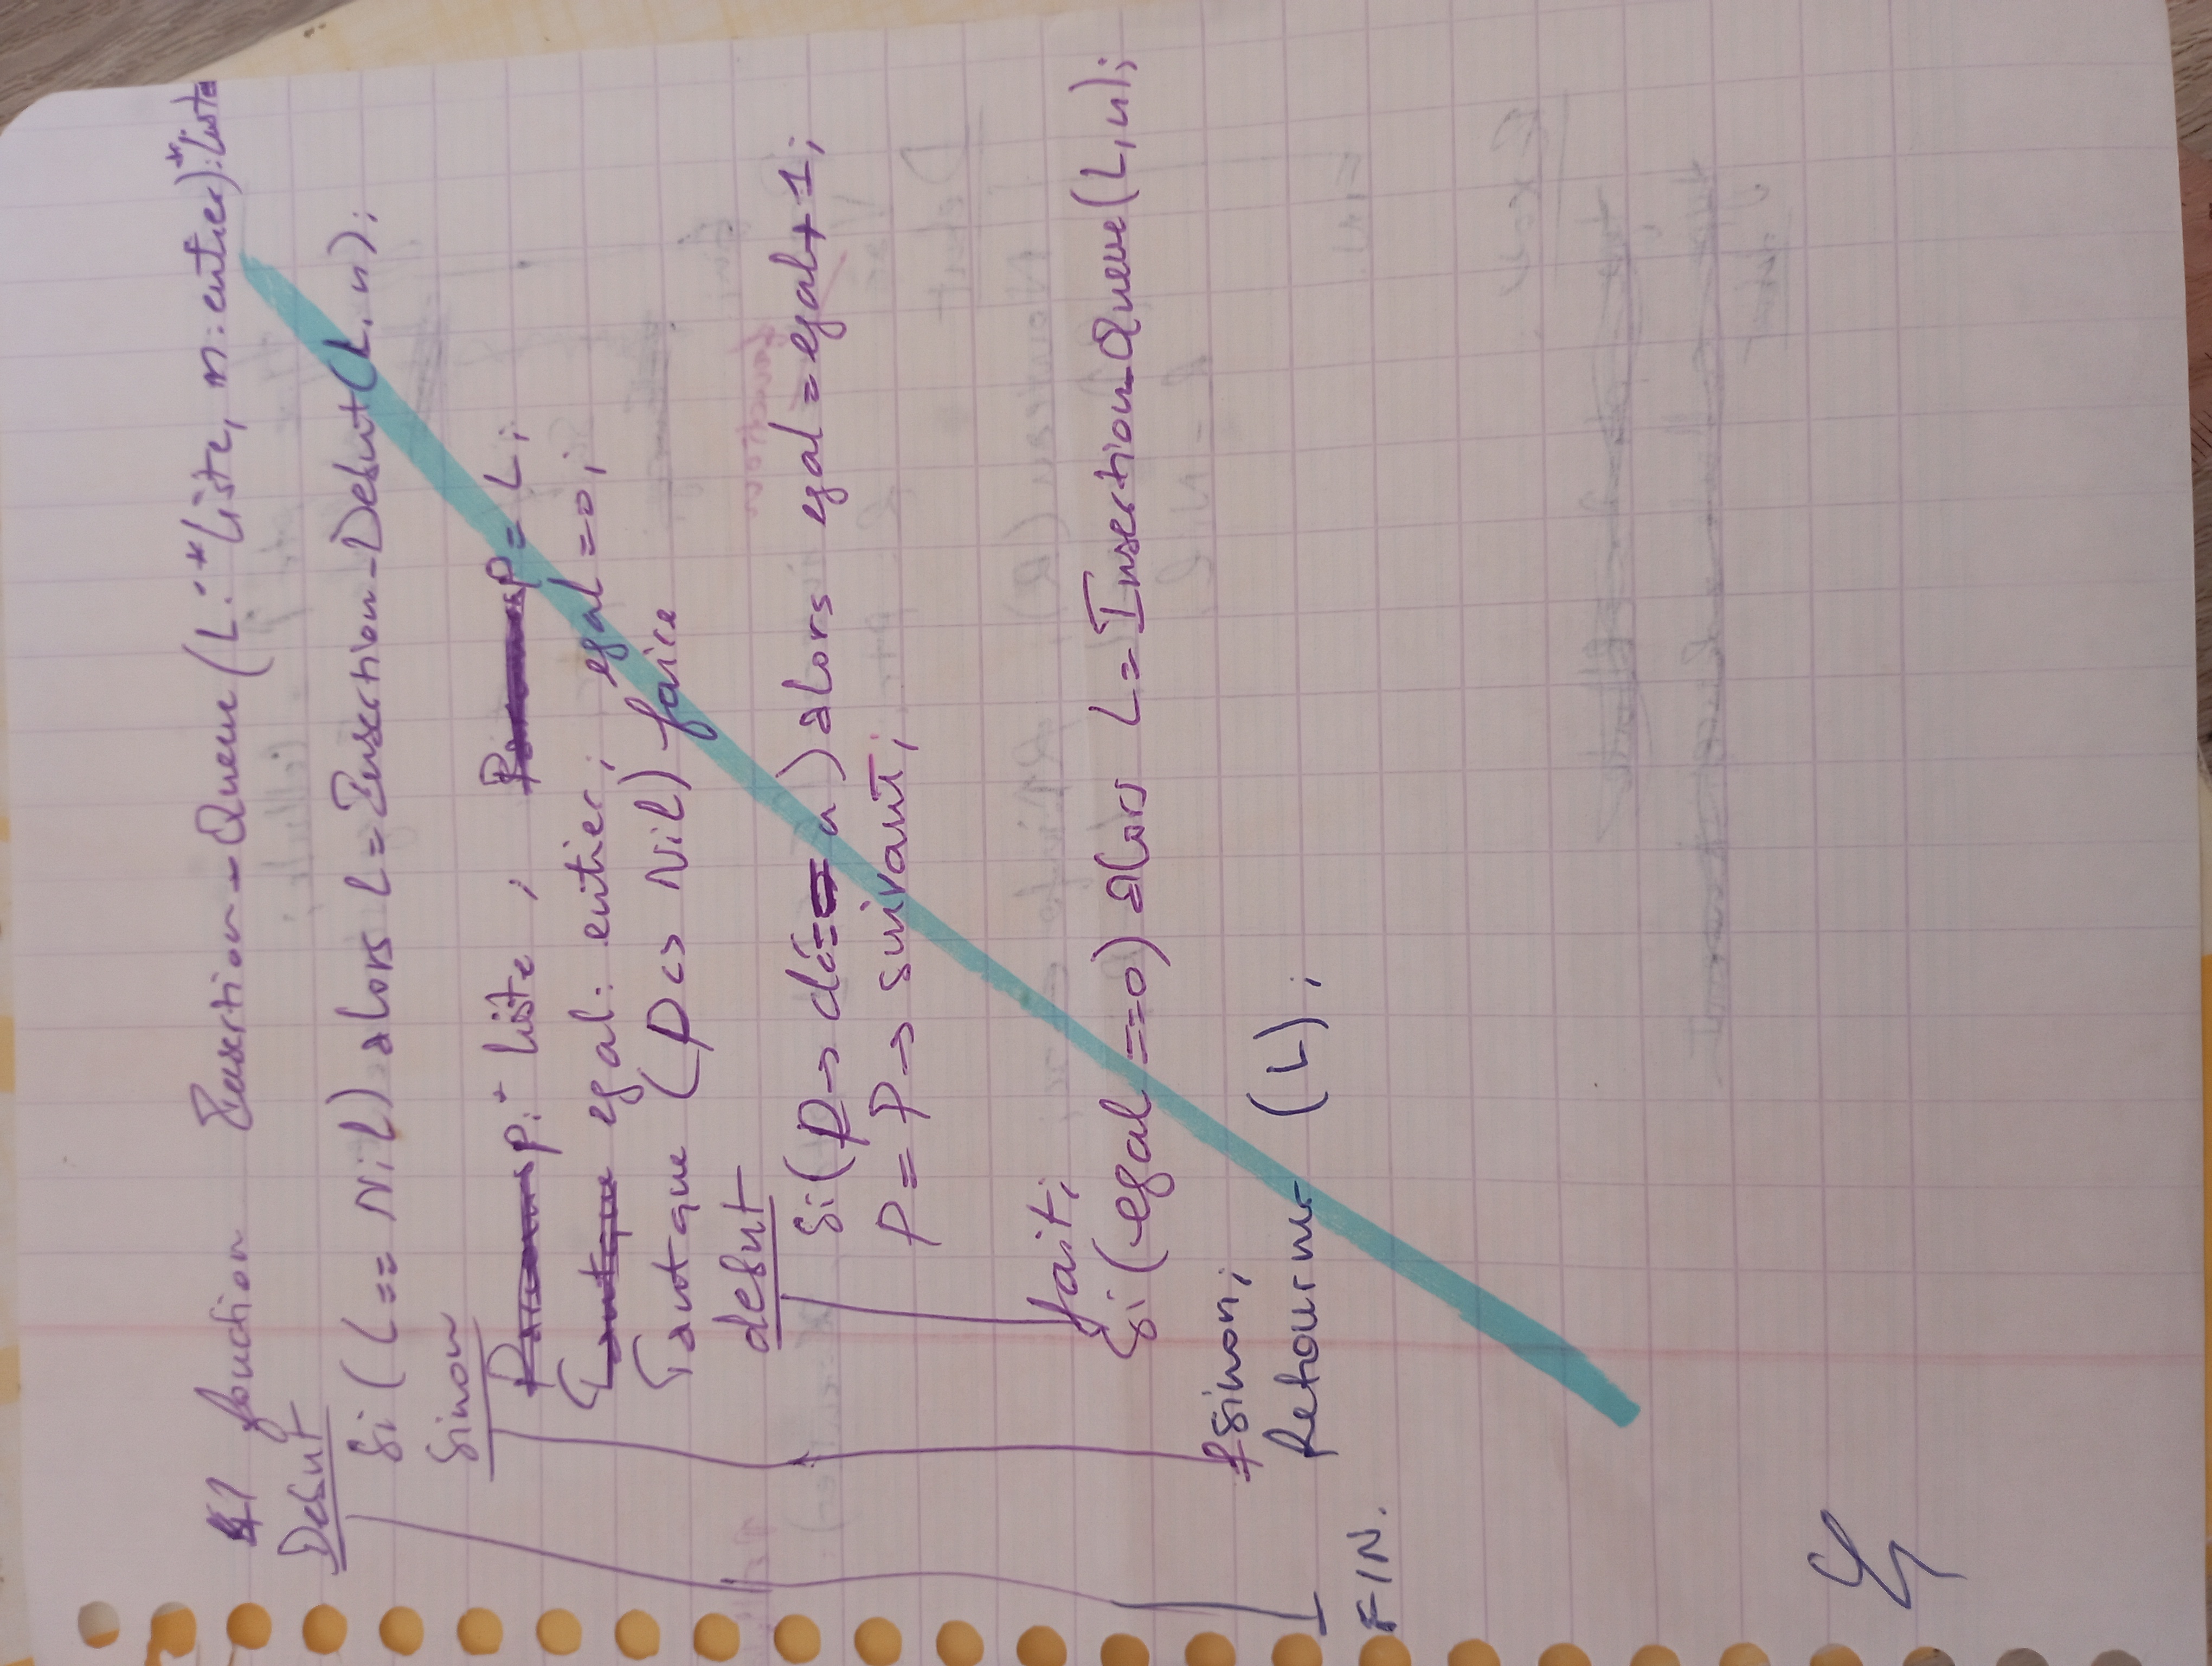 fonction Insertion_Queue (L: *liste, n: entier): *liste
Debut
Si (L == Nil) alors L = Insertion_Debut (L, n);
Sinon
p: * liste ; P = L;
egal: entier; egal = 0;
Tantque (p <> Nil) faire
debut
Si (p → clé == n) alors egal = egal + 1;
P = P → suivant;
fait;
Si (egal == 0) alors L = Insertion_Queue (L, n);
fsinon;
Retourner (L);
FIN.